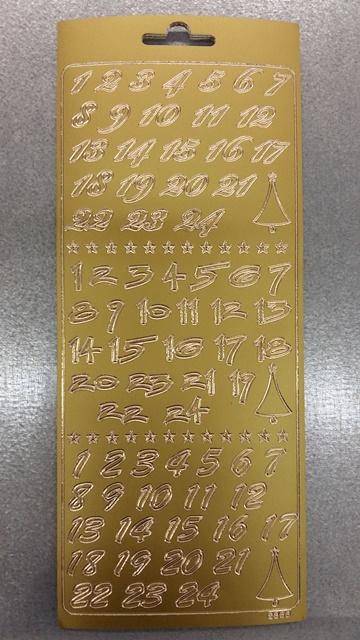 1 2 3 4 5 6 7
8 9 10 11 12
13 14 15 16 17
18 19 20 21
22 23 24
1 2 3 4 5 6 7
8 9 10 11 12 13
14 15 16 17 18
20 23 21 19
22 24
1 2 3 4 5 6 7
8 9 10 11 12
13 14 15 16 17
18 19 20 21
22 23 24